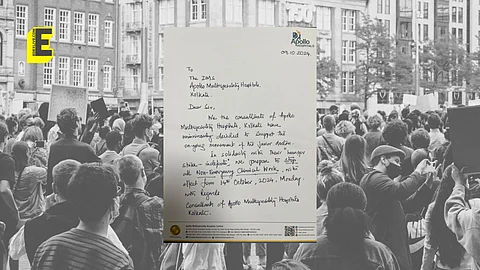 E
EDEXLIVE
Apollo
09.10.2024
To
The DMS
Apollo Multispeciality Hospitals
Kolkata.
Dear Sir,
We the consultants of Apollo
Multispeciality Hospitals, Kolkata have
unanimously decided to support the
ongoing movement of the Junior doctors.
In solidarity with their hunger
strike we propose to stop
all Non-Emergency Clinical Work, with
effect from 14th October, 2024, Monday.
With Regards
Consultants of Apollo Multispeciality Hospitals
Kolkata.